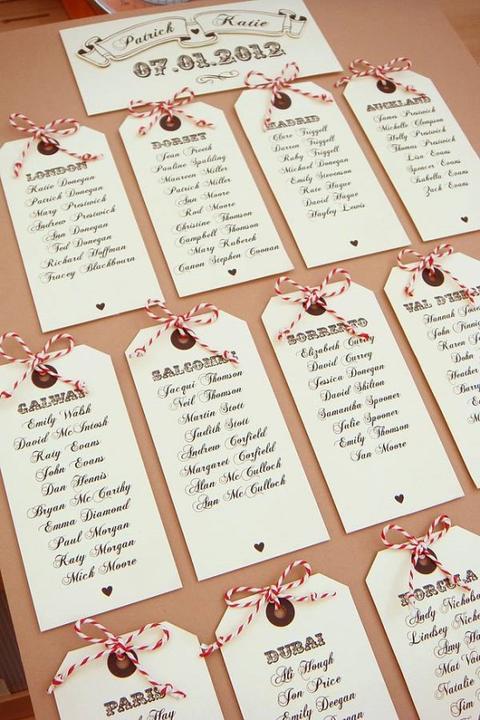 Patrick Katie
07.01.2012
LONDON
Katie Donegan
Patrick Donegan
Mary Prestwich
Andrew Prestwich
Ann Donegan
Ted Donegan
Richard Hoffman
Tracey Blackbourn
DORSET
Jean Freeth
Pauline Spalding
Maureen Miller
Patrick Miller
Ann Moore
Rod Moore
Christine Thomson
Campbell Thomson
Mary Robeck
Canon Stephen Coonan
MADRID
Clare Frizzell
Darren Frizzell
Ruby Frizzell
Michael Donegan
Emily Stevenson
Kate Hague
David Hague
Hayley Lewis
AUCKLAND
Jonna Prestwich
Michelle Compson
Holly Prestwich
Thomas Prestwich
Lisa Evans
Spencer Evans
Isabella Evans
Zack Evans
GALWAY
Emily Walsh
David McIntosh
Katy Evans
John Evans
Dan Hennis
Bryan McCarthy
Emma Diamond
Paul Morgan
Katy Morgan
Mick Moore
SALCOMBE
Jacqui Thomson
Neil Thomson
Martin Stott
Judith Stott
Andrew Corfield
Margaret Corfield
Alan McCullock
Ann McCullock
SORRENTO
Elizabeth Currey
David Currey
Jessica Donegan
David Shilton
Samantha Spooner
Julie Spooner
Emily Thomson
Ian Moore
VAL D'IS
Hannah
John
Karen
John
Heather
Barry
Emily
PARIS
Hay
DUBAI
Ali Hough
Jon Price
Emily Deegan
Andy
Lindsey
Amy
Mat
Natalie
Jim